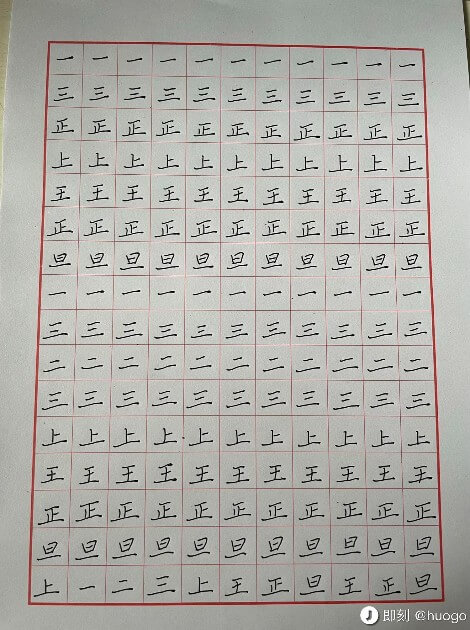 一一一一一一一一一一一
三三三三三三三三三三三
正正正正正正正正正正正
上上上上上上上上上上上
王王王王王王王王王王王
正正正正正正正正正正正
旦旦旦旦旦旦旦旦旦旦旦
一一一一一一一一一一一
三三三三三三三三三三三
二二二二二二二二二二二
三三三三三三三三三三三
上上上上上上上上上上上
王王王王王王王王王王王
正正正正正正正正正正正
旦旦旦旦旦旦旦旦旦旦旦
上一二三上王正旦王正旦
即刻 @huogo